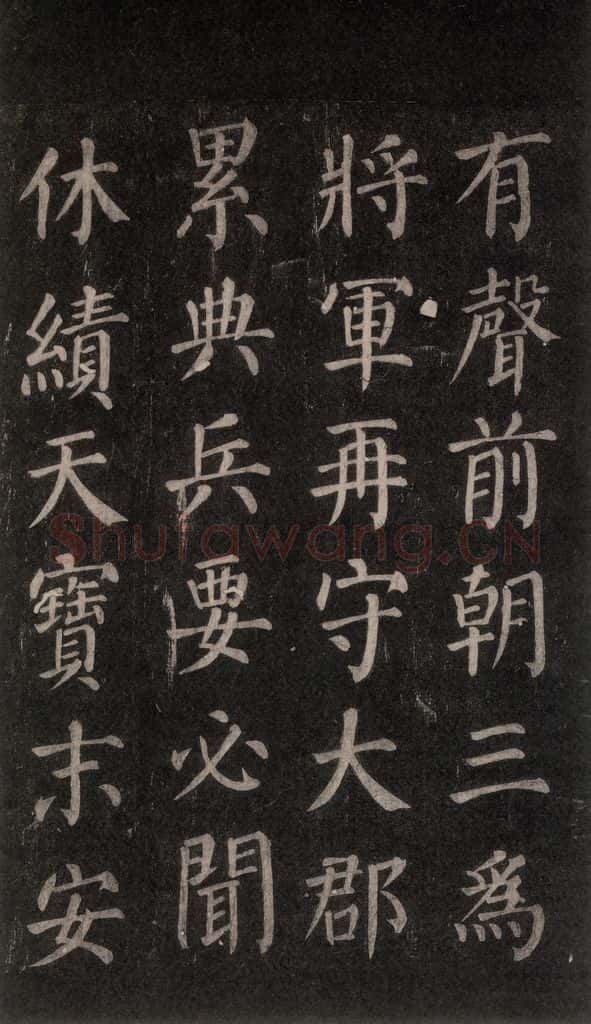 有聲前朝三爲
將軍再守大郡
累典兵要必聞
休績天寶末安
Shufawang.CN